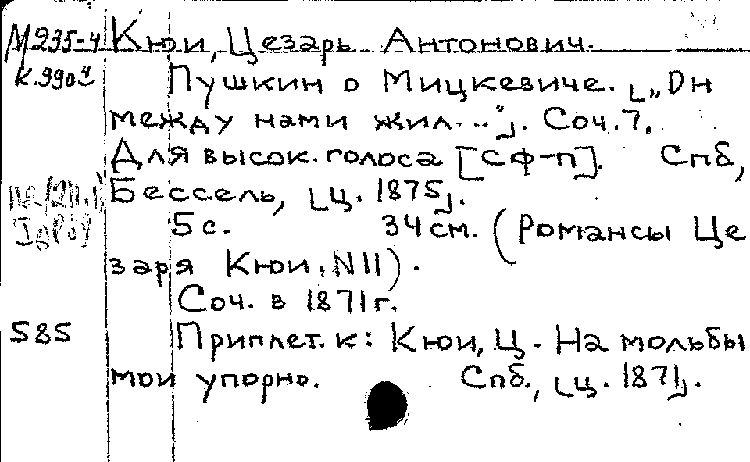 М235-4 Кюи, Цезарь Антонович.
К.990ч Пушкин о Мицкевиче. [„Он
между нами жил..."]. Соч.7.
Для высок. голоса [с ф-п]. Спб,
Бессель, [ц. 1875].
5 с. 34 см. (Романсы Це
заря Кюи, N11).
Соч. в 1871 г.
585 Приплет. к: Кюи, Ц. На мольбы
мои упорно. Спб., [ц. 1871].